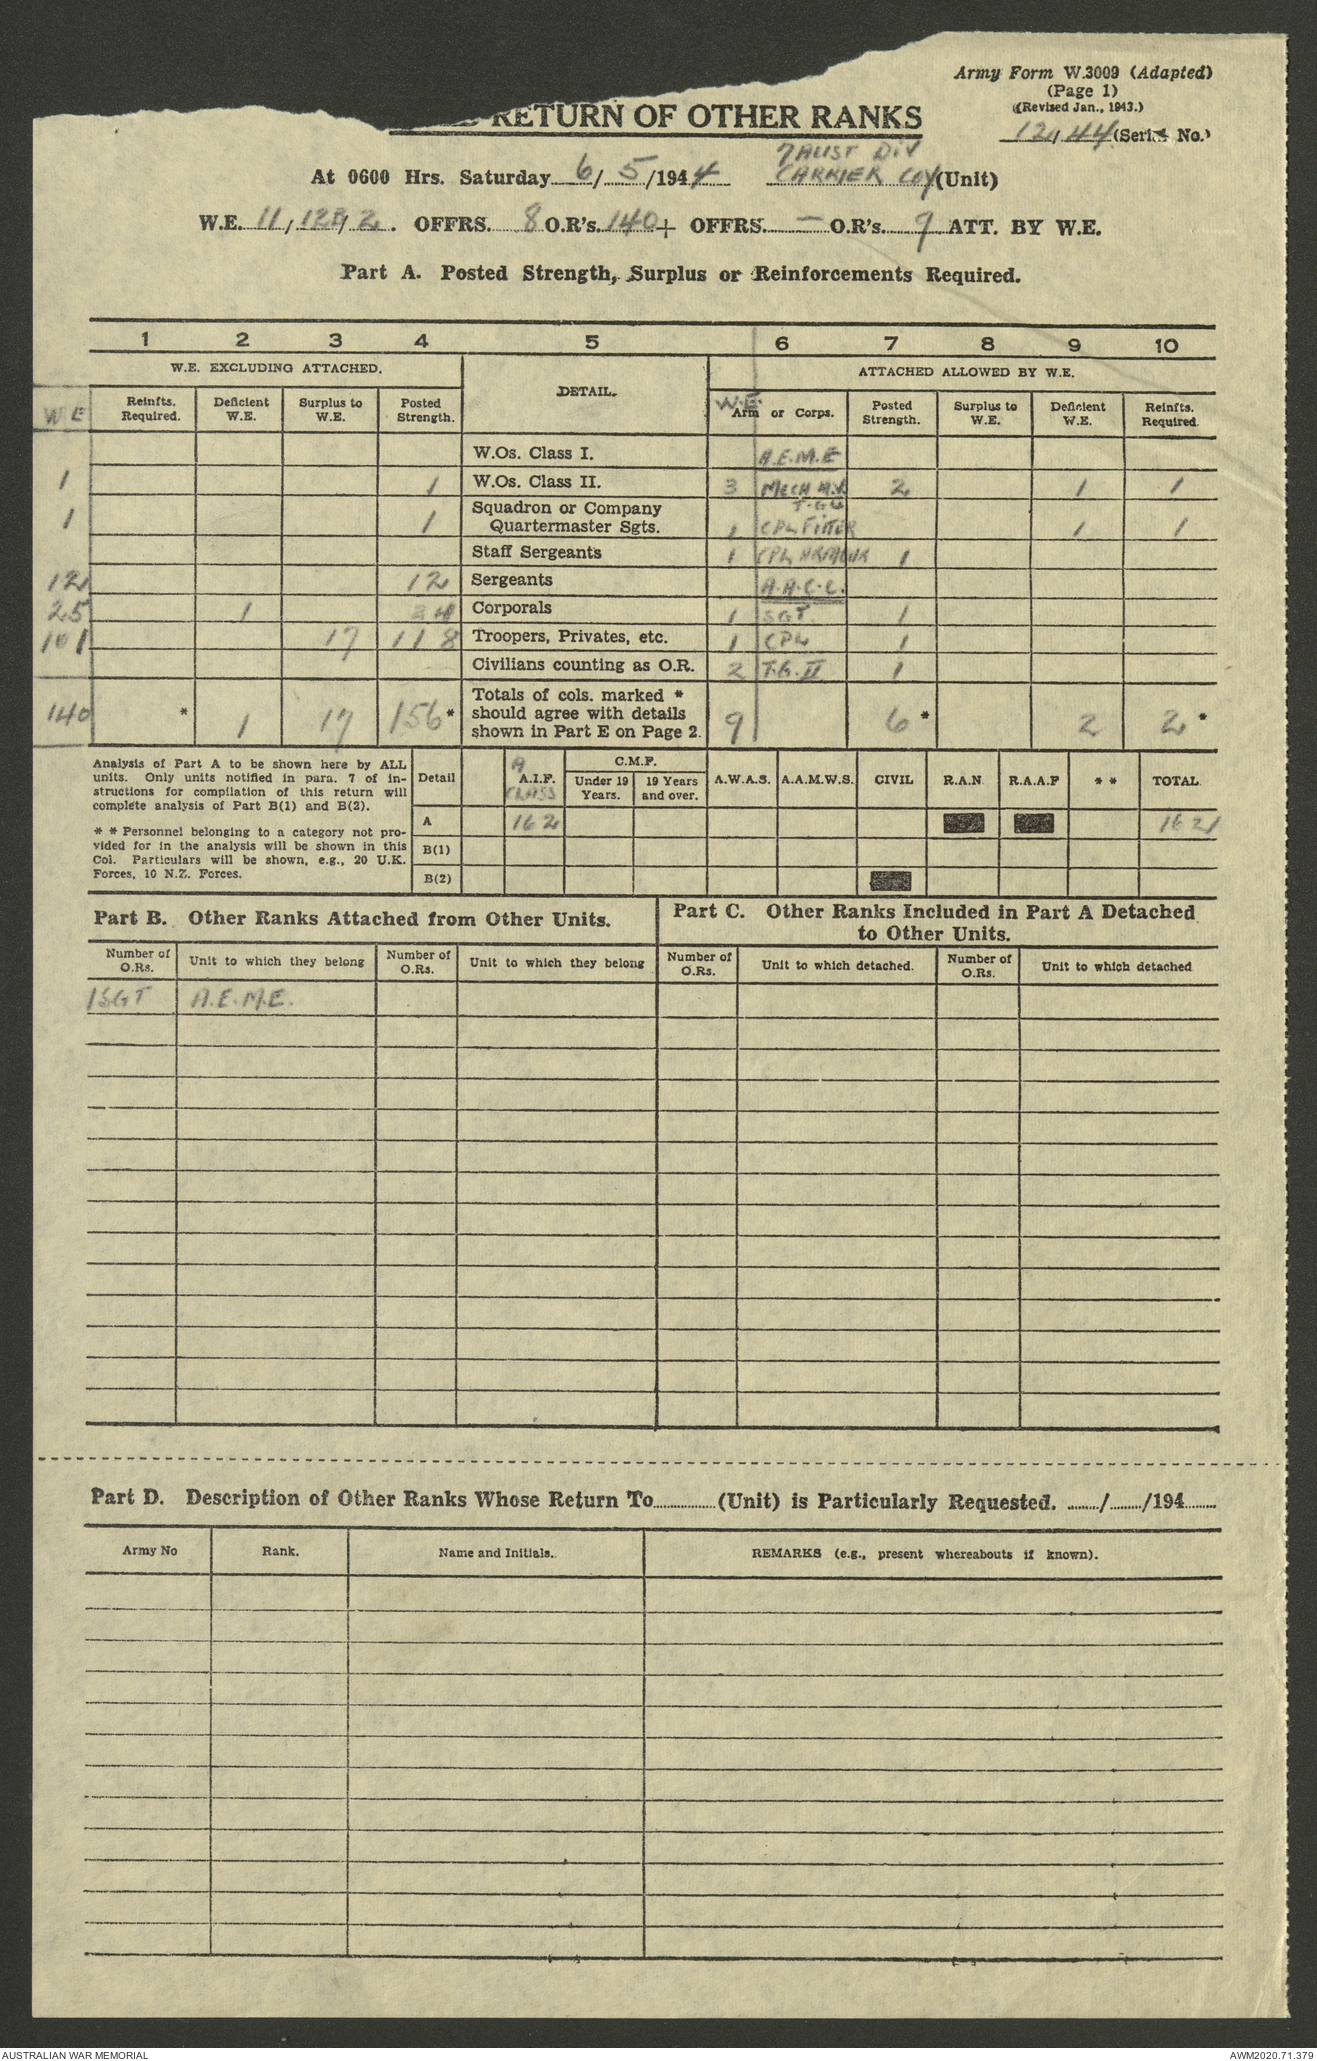 Army Form W.3009 (Adapted)
(Page 1)
(Revised Jan., 1943.)
12/44 (Serial No.)
RETURN OF OTHER RANKS
7 AUST DIV
At 0600 Hrs. Saturday 6/5/1944 CARRIER COY (Unit)
W.E. 11/12B/2. OFFRS. 8 O.R's. 140 + OFFRS. — O.R's. 9 ATT. BY W.E.
Part A. Posted Strength, Surplus or Reinforcements Required.
1 2 3 4 5 6 7 8 9 10
W.E. EXCLUDING ATTACHED. DETAIL. ATTACHED ALLOWED BY W.E.
W E Reinfts. Required. Deficient W.E. Surplus to W.E. Posted Strength. W.E. Arm or Corps. Posted Strength. Surplus to W.E. Deficient W.E. Reinfts. Required.
W.Os. Class I. A.E.M.E
1 1 W.Os. Class II. 3 MECH M.V. 2 1 1
T.G.II
1 1 Squadron or Company Quartermaster Sgts. 1 CPL FITTER 1 1
Staff Sergeants 1 CPL ARMOUR 1
12 12 Sergeants A.A.C.C.
25 1 Corporals 1 SGT. 1
101 17 118 Troopers, Privates, etc. 1 CPL 1
Civilians counting as O.R. 2 T.G. II 1
140 * 1 17 156* Totals of cols. marked * should agree with details shown in Part E on Page 2. 9 6* 2 2*
Analysis of Part A to be shown here by ALL units. Only units notified in para. 7 of instructions for compilation of this return will complete analysis of Part B(1) and B(2).
* * Personnel belonging to a category not provided for in the analysis will be shown in this Col. Particulars will be shown, e.g., 20 U.K. Forces, 10 N.Z. Forces.
Detail A A.I.F. CLASS C.M.F. Under 19 Years. 19 Years and over. A.W.A.S. A.A.M.W.S. CIVIL R.A.N. R.A.A.F * * TOTAL.
A 162 162
B(1)
B(2)
Part B. Other Ranks Attached from Other Units.
Part C. Other Ranks Included in Part A Detached
to Other Units.
Number of O.Rs. Unit to which they belong Number of O.Rs. Unit to which they belong Number of O.Rs. Unit to which detached. Number of O.Rs. Unit to which detached
1 SGT A.E.M.E.
Part D. Description of Other Ranks Whose Return To (Unit) is Particularly Requested. / /194
Army No Rank. Name and Initials. REMARKS (e.g., present whereabouts if known).
AUSTRALIAN WAR MEMORIAL AWM2020.71.379